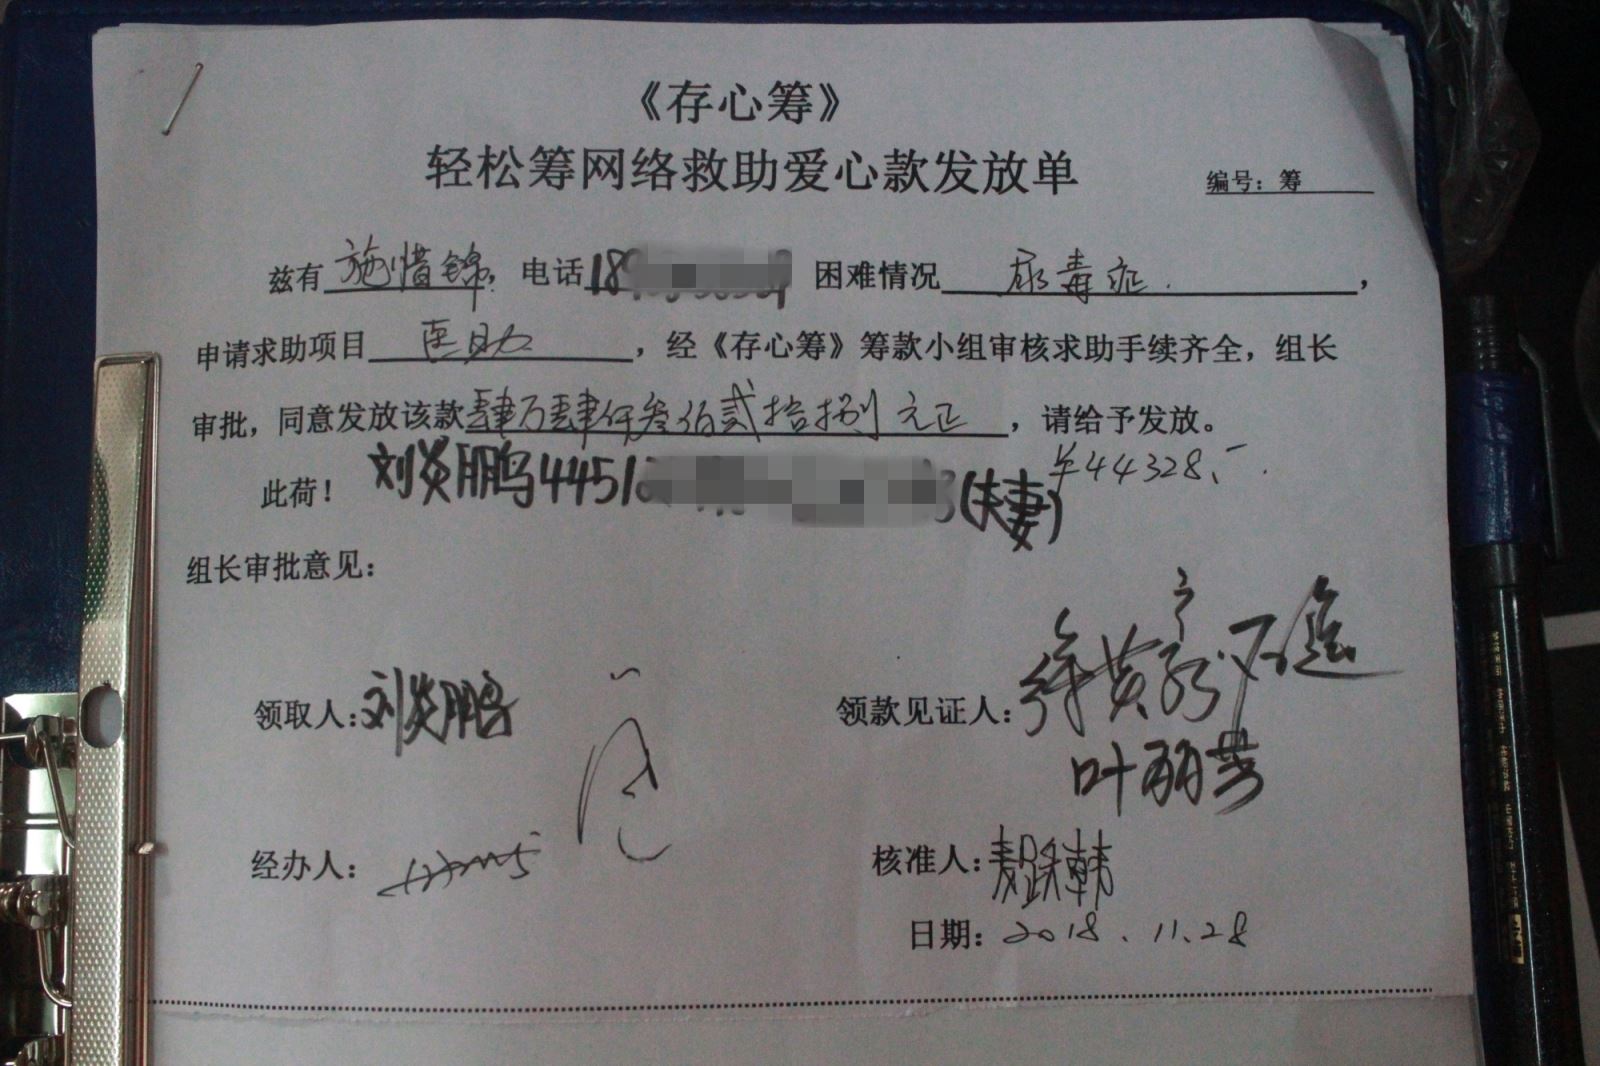 《存心筹》
轻松筹网络救助爱心款发放单
编号：筹
兹有施惜锦，电话18 困难情况 尿毒症.，
申请求助项目 医助 ，经《存心筹》筹款小组审核求助手续齐全，组长
审批，同意发放该款肆万肆仟叁佰贰拾捌元正，请给予发放。
¥44328.-
此荷！ 刘炎鹏4451 3(夫妻)
组长审批意见：
领取人：刘炎鹏 领款见证人：
叶丽芳
经办人： 核准人：麦跌韩
日期：2018.11.28